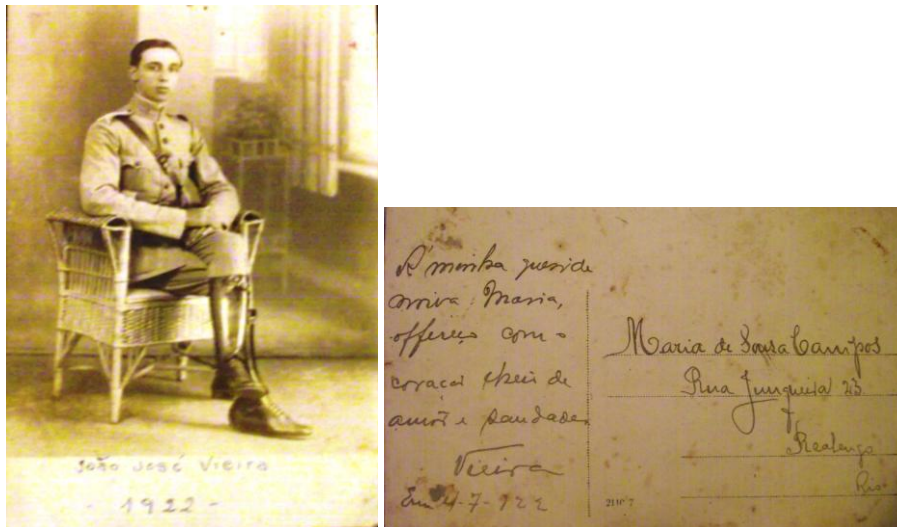 João José Vieira
- 1922 -
Á minha querida
noiva Maria,
offereço com o
coração cheio de
amôr e saudades
Vieira
Em 4-7-922
Maria de Sousa Campos
Rua Junqueira 23
Realengo
Rio